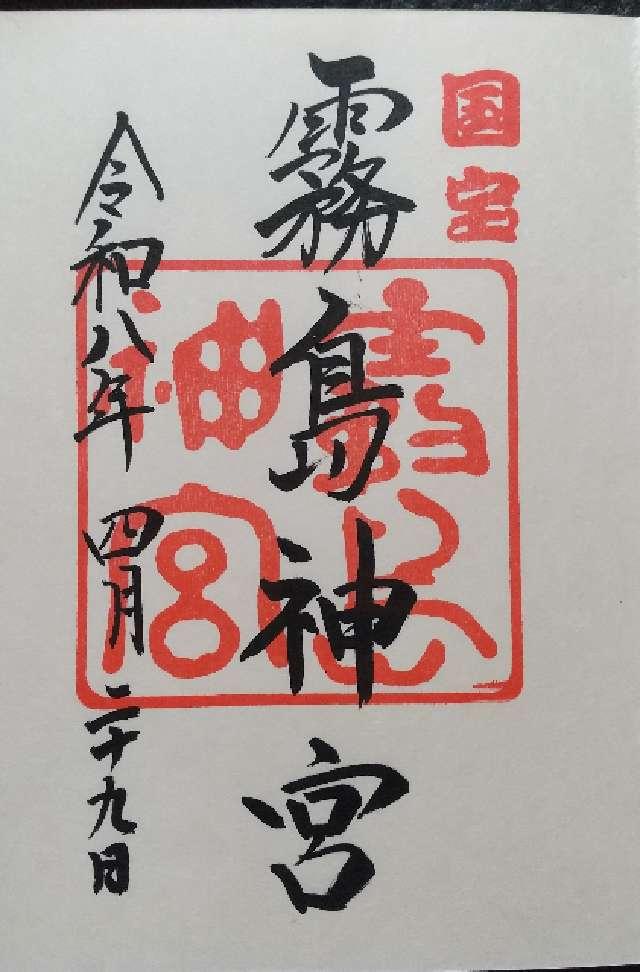 国宝
霧島神宮
令和八年四月二十九日